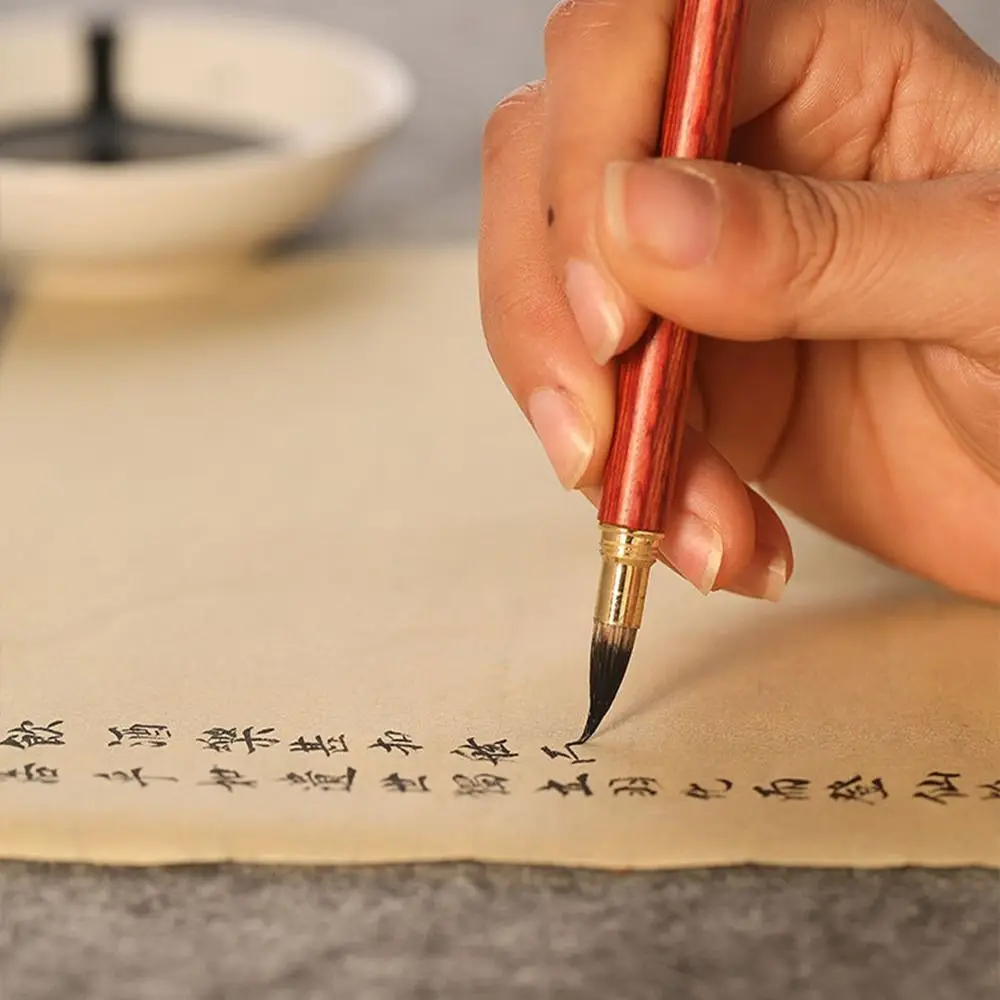 飲酒樂甚扣舷
乎如遺世獨立羽化而登仙